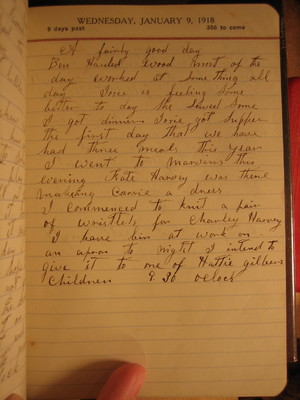 WEDNESDAY, JANUARY 9, 1918
9 days past 356 to come
A fairly good day
Ben Hauled wood most of the
day worked at something all
day Irie is feeling some
better to day she sewed some
I got dinner Irie got supper
the first day that we have
had three meals this year
I went to Marvins this
evening Kate Harvey was there
making Carrie a dress
I commenced to knit a pair
of wristlets for Charley Harvey
I have bin at work on
an apron to night I intend to
give it to one of Hattie
Children 9 30 oclock